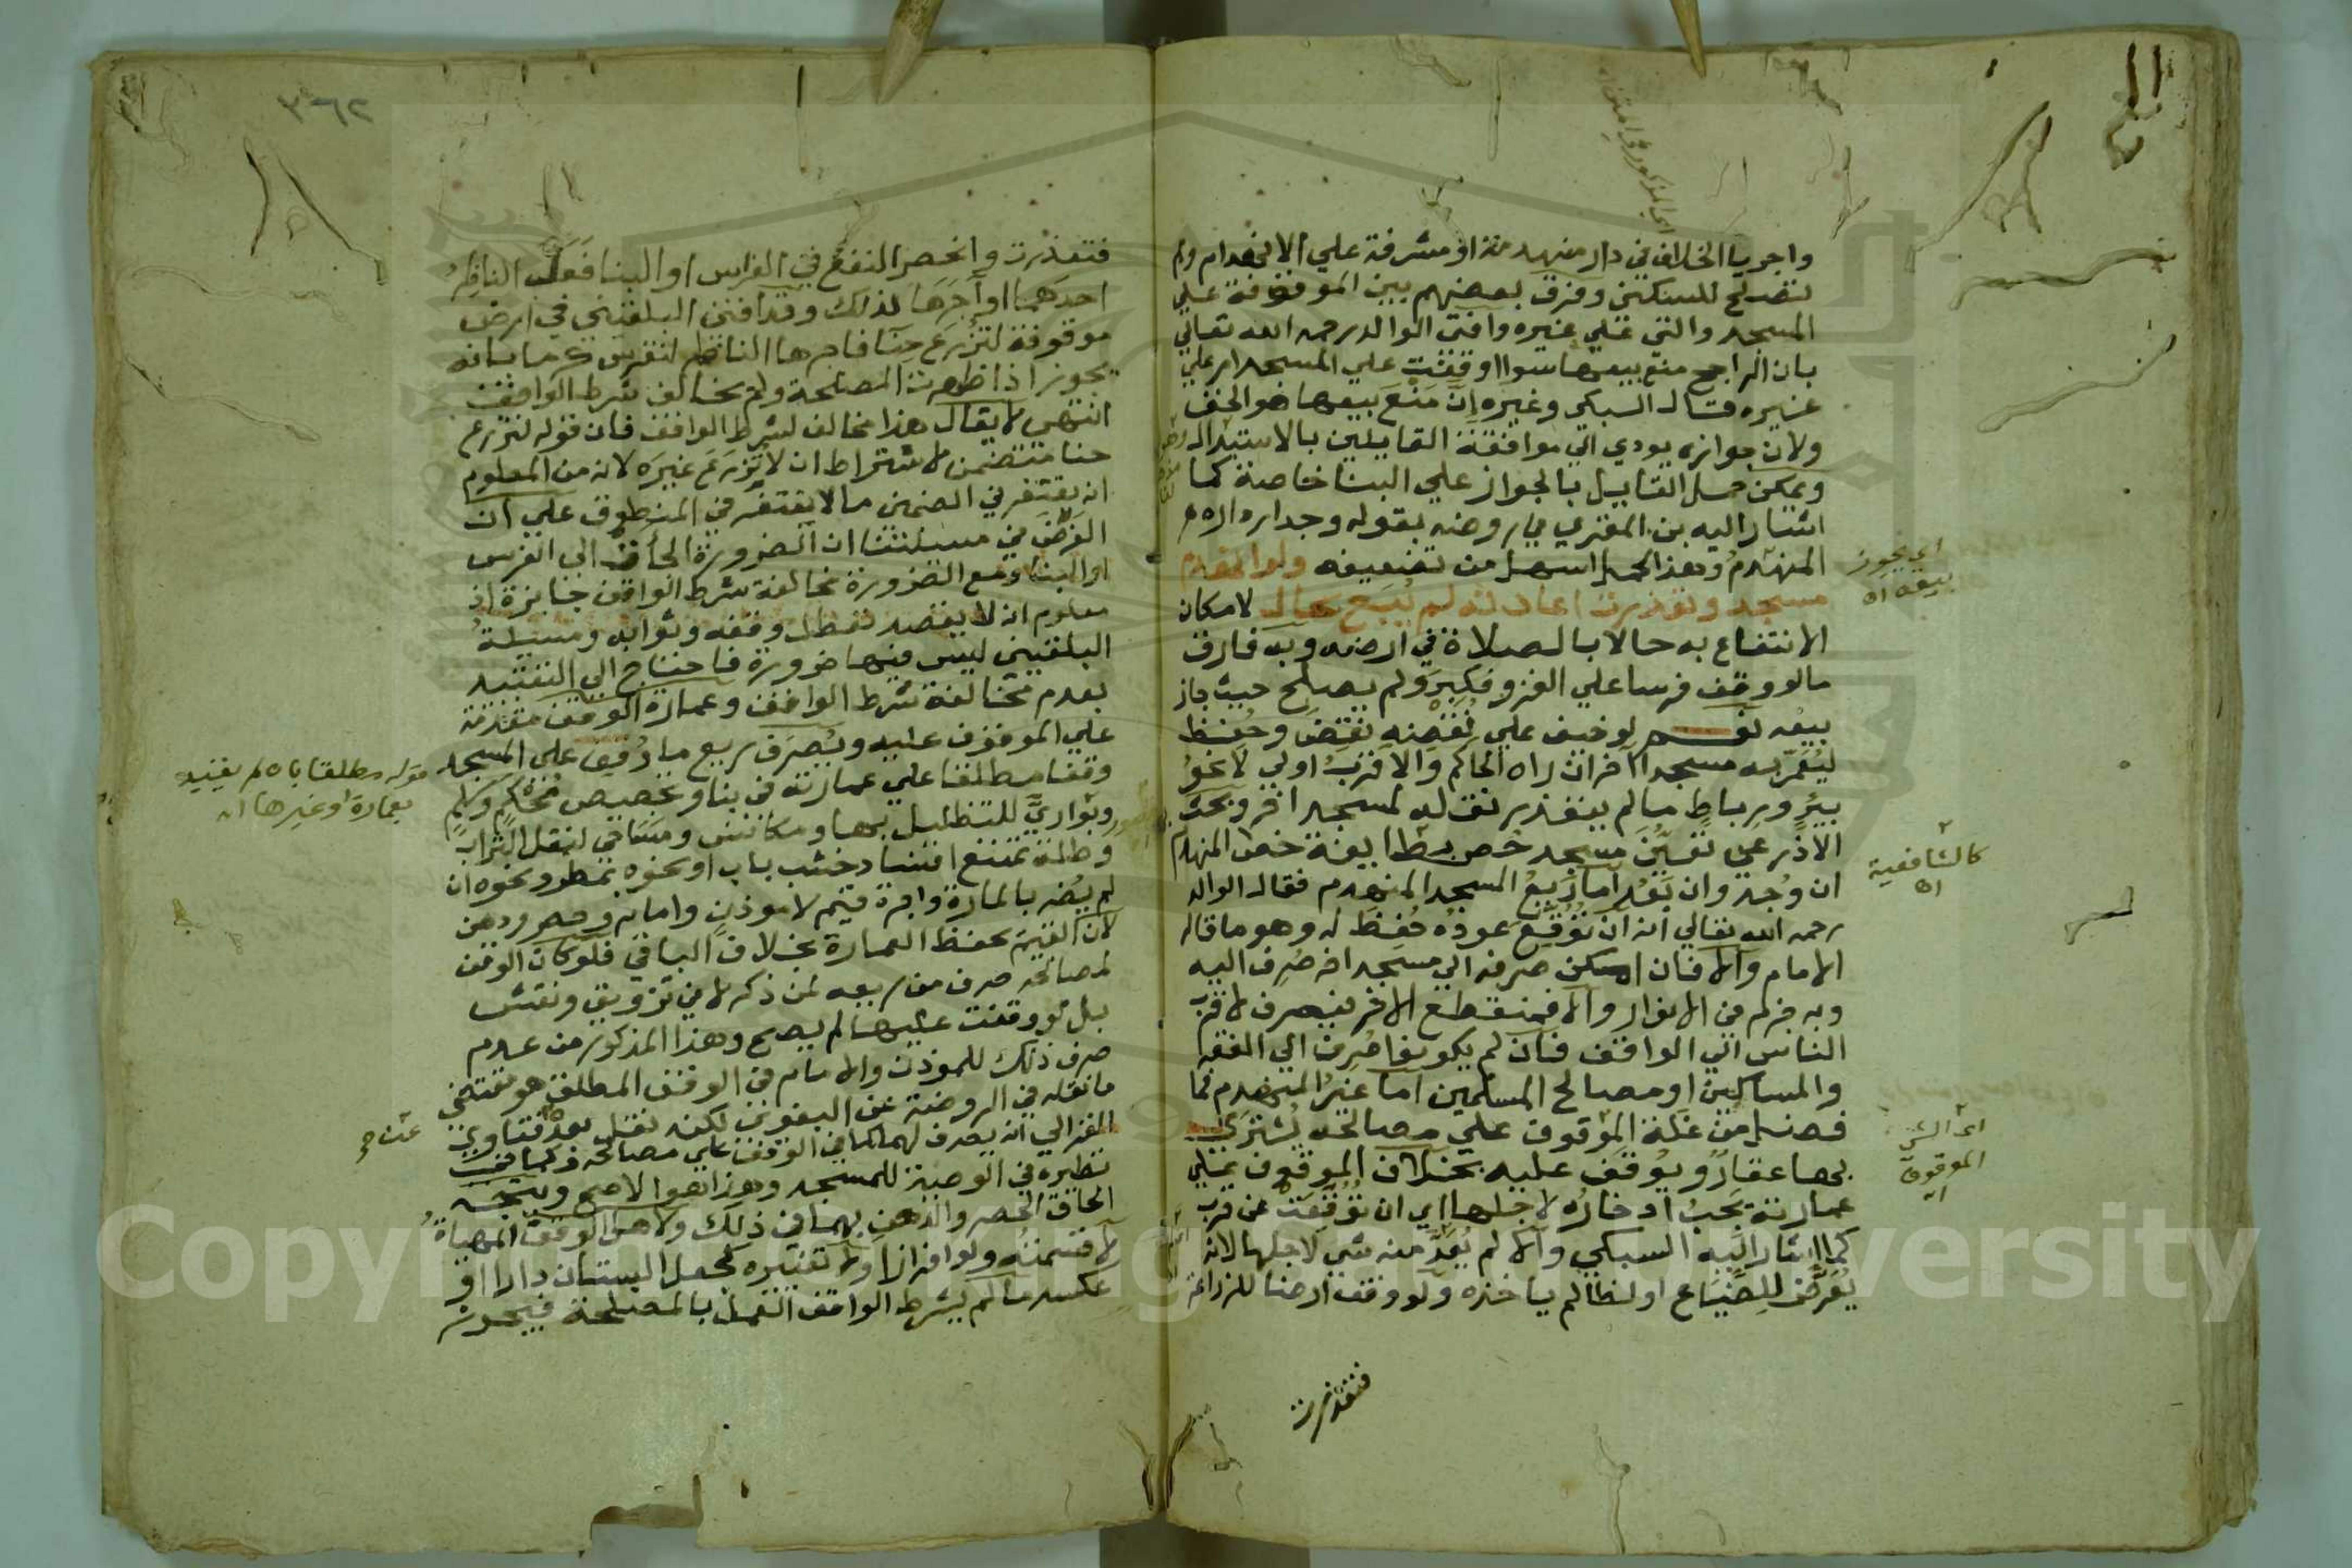 واجريا الخلاف في دار منهدمة او مشرفة علي الانهدام ولم
تصلح للسكني وفرق بعضهم بين الموقوفة علي
المسجد والتي علي غيره وافتي الوالد رحمه الله تعالي
بان الراجح منع بيعها سوا اوقفت علي المسجد ام علي
غيره قال السبكي وغيره ان منع بيعها هو الحق
ولان جوازه يودي الي موافقة القايلين بالاستبدال
ويمكن حمل القايل بالجواز علي البنا خاصة كما
اشار اليه بن المقري في روضه بقوله وجدار داره
المنهدم وهذا الحمل اسهل من تضعيفه ولو انهدم
مسجد وتعذرت اعادته لم يبع بحال لامكان
الانتفاع به حالا بالصلاة في ارضه وبه فارق
مالو وقف فرسا علي الغزو فكبر ولم يصلح حيث جاز
بيعه نعم لو خيف علي نقضه نقض وحفظ
ليعمر به مسجدا اخر ان راه الحاكم والاقرب اولي لا نحو
بير ورباط مالم يتعذر نقله لمسجد اخر وبحث
الاذرعي تعين مسجد خص بطايفة خص المنهدم
ان وجد وان بعد اما ريع المسجد المنهدم فقال الوالد
رحمه الله تعالي انه ان توقع عوده حفظ له وهو ما قاله
الامام والا فان امكن صرفه الي مسجد اخر صرف اليه
وبه جزم في الانوار والا فمنقطع الاخر فيصرف لاقرب
الناس الي الواقف فان لم يكونوا صرف الي الفقرا
والمساكين او مصالح المسلمين اما غير المنهدم فما
فضل من غلة الموقوف علي مصالحه يشتري
بها عقار ويوقف عليه بخلاف الموقوف علي
عمارته يجب ادخاره لاجلها اي ان توقعت عن قرب
كما اشار اليه السبكي والا لم يعد منه شي لاجلها لانه
يعرض للضياع او لظالم ياخذه ولو وقف ارضا للزراعة
فتعذرت
اي المذكورة في المتن
اي يجوز
بيعه اه
كالشافعية
اه
اي الشي
الموقوف
اه
٣٦٢
فتعذرت وانحصر النفع في الغراس او البنا فعل الناظر
احدهما او آجرها لذلك وقد افتي البلقيني في ارض
موقوفة لتزرع حبا فاجرها الناظر لتغرس كرما بانه
يجوز اذا ظهرت المصلحة ولم يخالف شرط الواقف
انتهي لا يقال هذا مخالف لشرط الواقف فان قوله لتزرع
حبا متضمن لاشتراط ان لا تزرع غيره لانه من المعلوم
انه يغتفر في الضمني ما لا يغتفر في المنطوق علي ان
الفرض في مسيلتنا ان الضرورة الجات الي الغرس
او البنا ومع الضرورة مخالفة شرط الواقف جايزة اذ
معلوم انه لا يقصد تعطل وقفه وثوابه ومسيلة
البلقيني ليس فيها ضرورة فاحتاج الي التقييد
بعدم مخالفة شرط الواقف وعمارة الموقوف مقدمة
علي الموقوف عليه ويصرف ريع ما وقف علي المسجد
وقفا مطلقا علي عمارته في بنا وتجصيص محكم وسلم
وبواري للتظليل بها ومكانس ومساحي لنقل التراب
وظلة تمنع افساد خشب باب او نحوه بمطر ونحوه ان
لم يضر بالمارة واجرة قيم لا موذن وامام وحصر ودهن
لان القيم يحفظ العمارة بخلاف الباقي فلو كان الوقف
لمصالحه صرف من ريعه لمن ذكر لا في تزويق ونقش
بل لو وقفت عليها لم يصح وهذا المذكور من عدم
صرف ذلك للموذن والامام في الوقف المطلق هو مقتضي
ما نقله في الروضة عن البغوي لكنه نقل بعده فتاوي
الغزالي انه يصرف لهما كما في الوقف علي مصالحه وكما في
نظيره في الوصية للمسجد وهذا هو الاصح ويتجه
الحاق الحصر والدهن بهما في ذلك ولاهل الوقف المهياة
لا قسمته ولو افرازا ولا تغييره كجعل البستان دارا او
عكسه مالم يشرط الواقف العمل بالمصلحة فيجوز
قوله مطلقا بان لم يقيد
بعمارة او غيرها اه